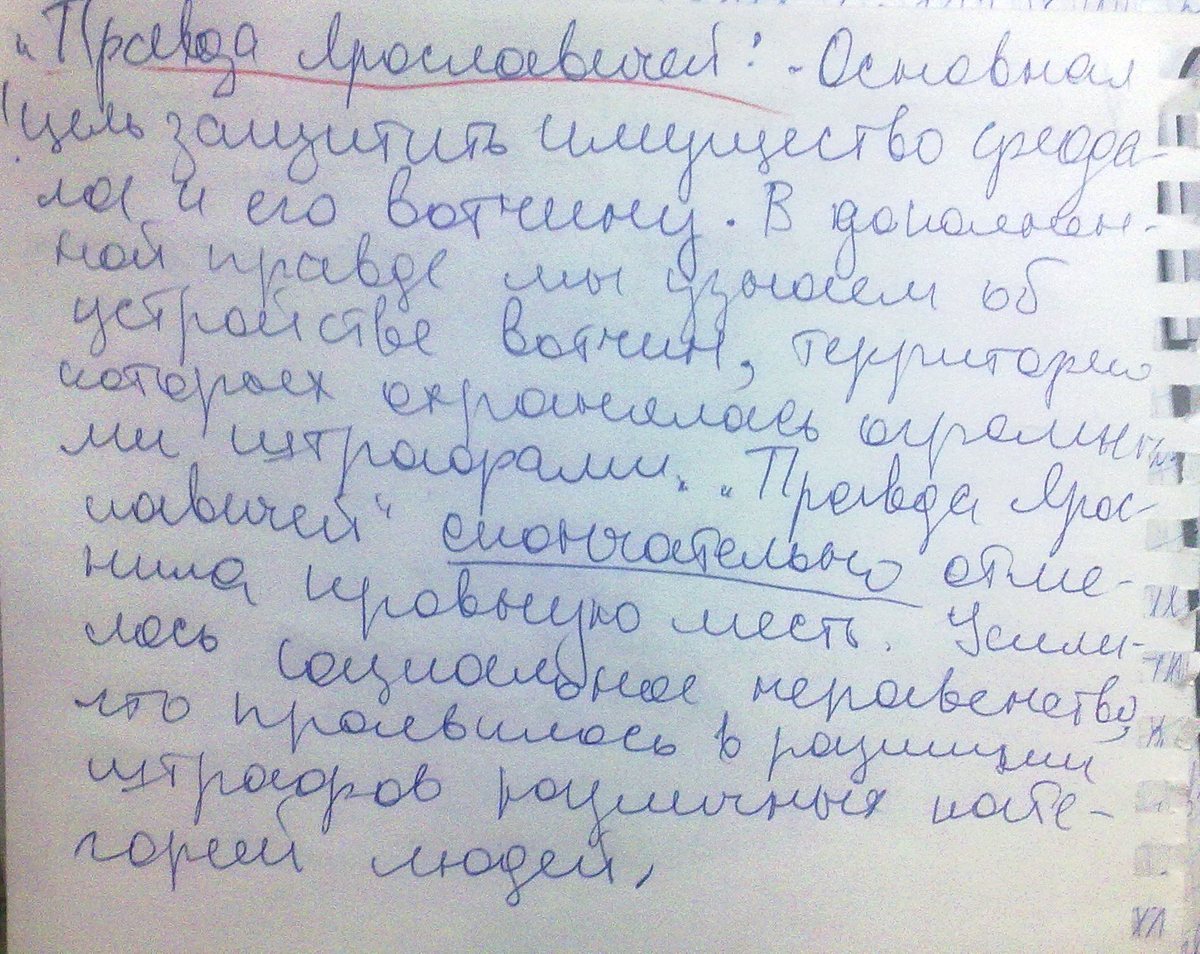 "Правда Ярославичей": - Основная
цель защитить имущество феода-
ла и его вотчину. В дополнен-
ной правде мы узнаем об
устройстве вотчин, территория
которых охранялась огромны
ми штрафами. "Правда Ярос-
лавичей" окончательно отме-
нила кровную месть. Усили-
лось социальное неравенство,
что проявилось в различии
штрафов различных кате-
горий людей,